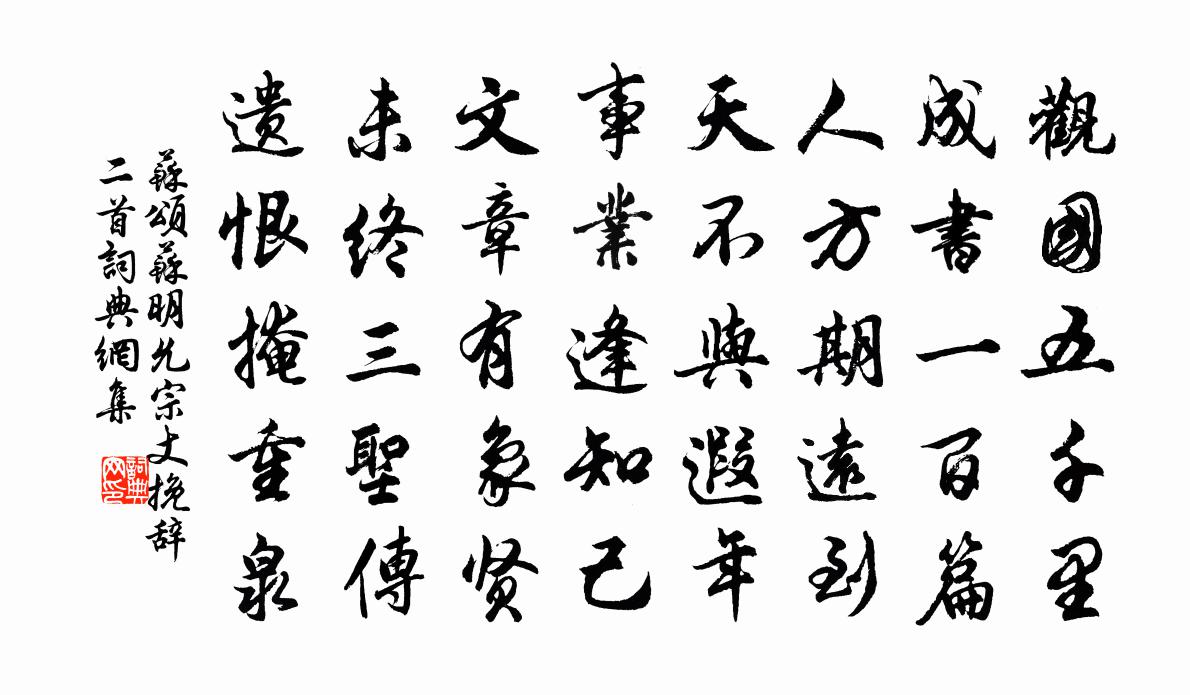 觀國五千里
成書一百篇
人方期遠到
天不與遐年
事業逢知己
文章有象贤
未終三聖傳
遗恨掩重泉
蘇頌蘇明允宗丈挽辞
二首詞典網集
詞典
网印